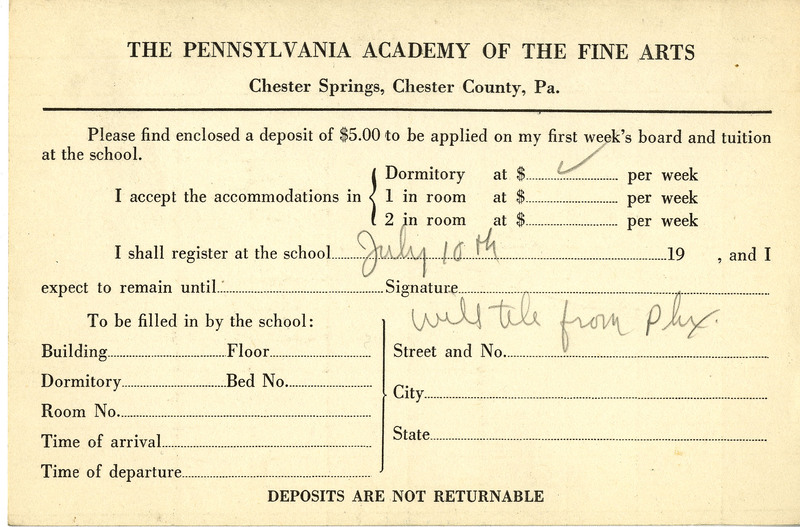 THE PENNSYLVANIA ACADEMY OF THE FINE ARTS
Chester Springs, Chester County, Pa.
Please find enclosed a deposit of $5.00 to be applied on my first week's board and tuition
at the school.
Dormitory at $ ✓ per week
I accept the accommodations in { 1 in room at $ per week
2 in room at $ per week
I shall register at the school July 10th 19 , and I
expect to remain until Signature
will tele from Phx.
To be filled in by the school:
Building Floor Street and No.
Dormitory Bed No.
City
Room No.
State
Time of arrival
Time of departure
DEPOSITS ARE NOT RETURNABLE